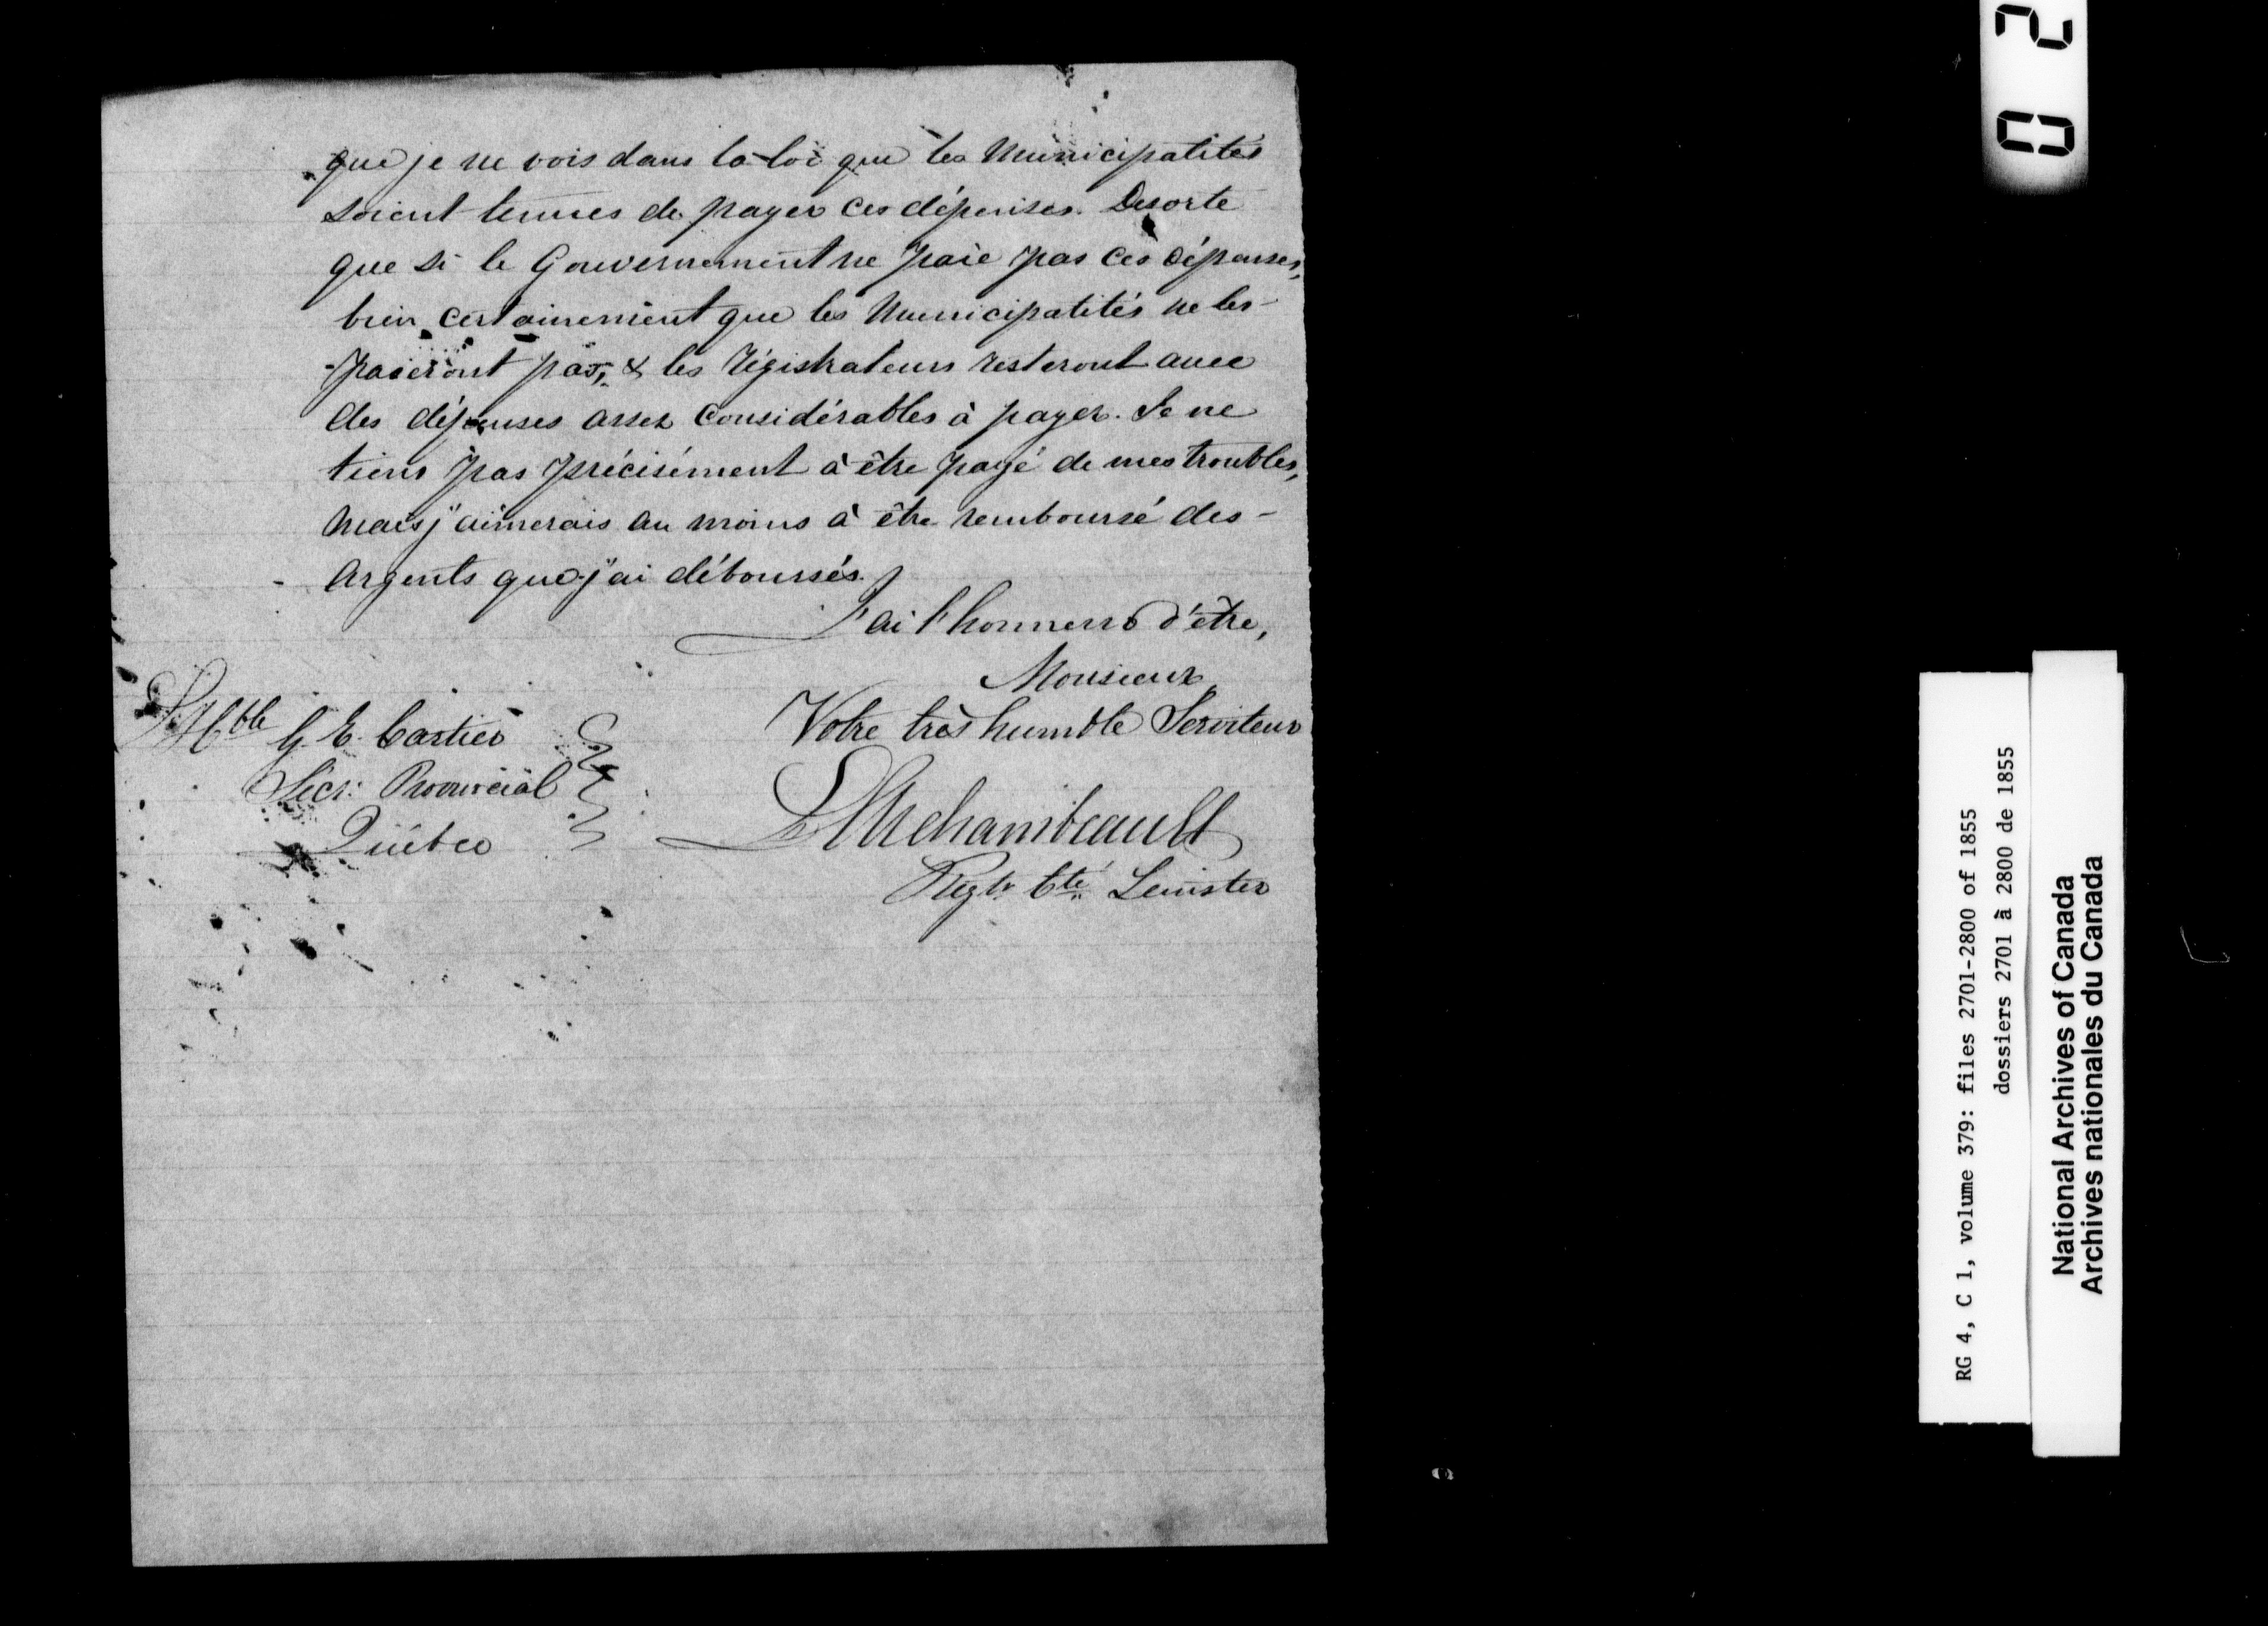 que je ne vois dans la loi que les Municipalités
soient tenues de payer ces dépenses. Desorte
que si le Gouvernement ne paie pas ces dépenses,
bien certainement que les Municipalités ne les
paieront pas, & les Régistrateurs resteront avec
des dépenses assez considérables à payer. Je ne
tiens pas précisément à être payé de mes troubles,
mais j'aimerais au moins à être remboursé des
Argents que j'ai déboursés.
J'ai l'honneur d'être,
Monsieur
Votre très humble Serviteur
Archambeault
Regtr Cté Leinster
L'Hble G. E. Cartier
Secr: Provincial
Québec
0 2
RG 4, C 1, volume 379: files 2701-2800 of 1855
dossiers 2701 à 2800 de 1855
National Archives of Canada
Archives nationales du Canada